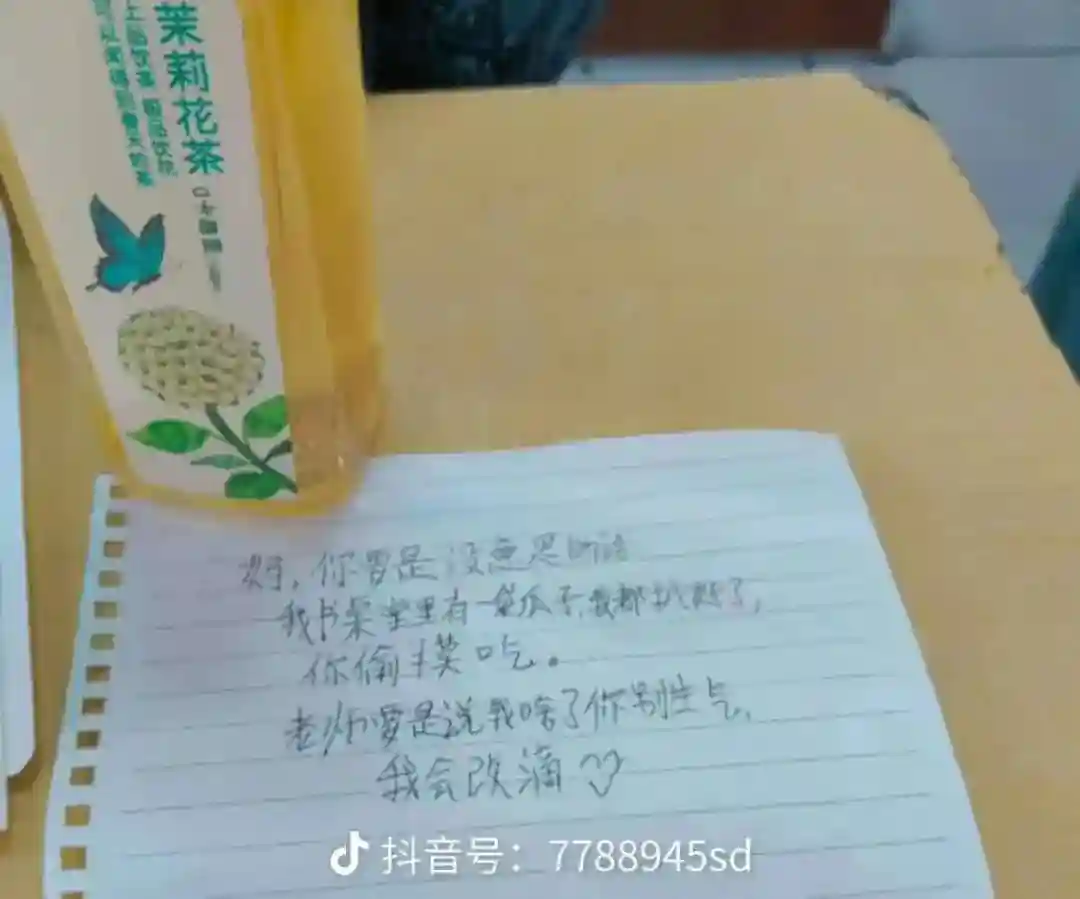 茉莉花茶
你要是没意思的话
我书桌堂里有一袋瓜子,我都扒好了,
你偷摸吃。
老师要是说我啥了你别生气,
我会改滴
抖音号：7788945sd